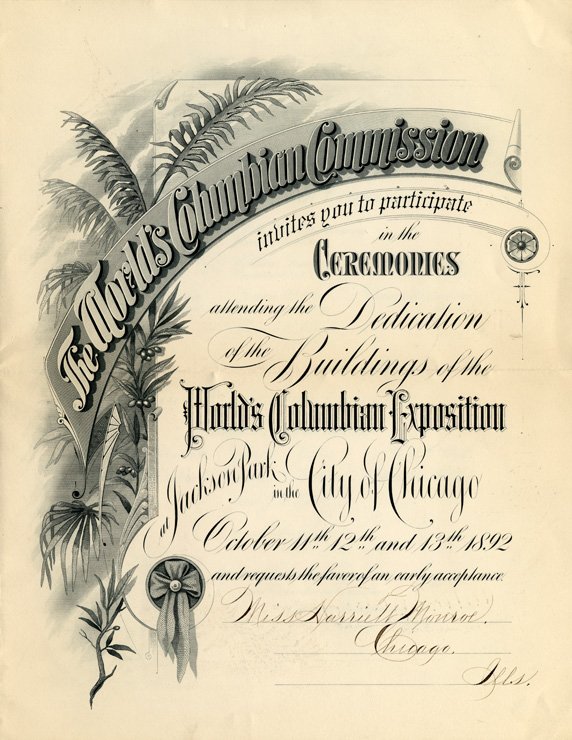 The World's Columbian Commission
invites you to participate
in the
CEREMONIES
attending the Dedication
of the Buildings of the
World's Columbian Exposition
at Jackson Park in the City of Chicago
October 11th 12th and 13th 1892
and requests the favor of an early acceptance.
Miss Harriett Monroe.
Chicago.
Ills.